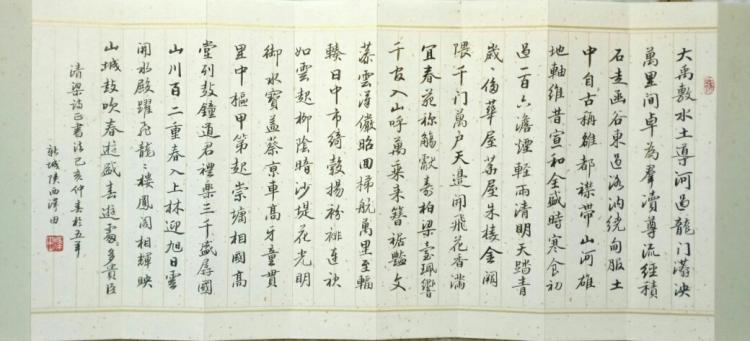 大禹敷水土導河過龍门漭泱
萬里間卓為羣瀆尊流經積
石走函谷東過洛汭繞甸服土
中自古稱雄都襟帶山河雄
地軸維昔宣和全盛時寒食初
過一百六澹煙輕雨清明天踏青
歲侈華屋茅屋朱棱金闕
隈千门萬户天邊開飛花香滿
宜春苑称觴獻壽柏梁臺珮響
千官入山呼萬乘来簪裾豔文
慕雲漢儀昭回梯航萬里至輻
輳日中市綺縠揚紛排連袂
如雲起柳陰暗沙堤花光明
御水寶蓋蔡京車高牙童貫
里中樞甲第起崇墉相國高
堂列鼓鐘道君禮樂三千盛孱國
山川百二重春入上林迎旭日雲
開水殿躍飛龍:樓鳳閣相輝映
山城鼓吹春遊盛春遊處多貴臣
清梁詩正書法己亥仲春於五羊
陝西澤田